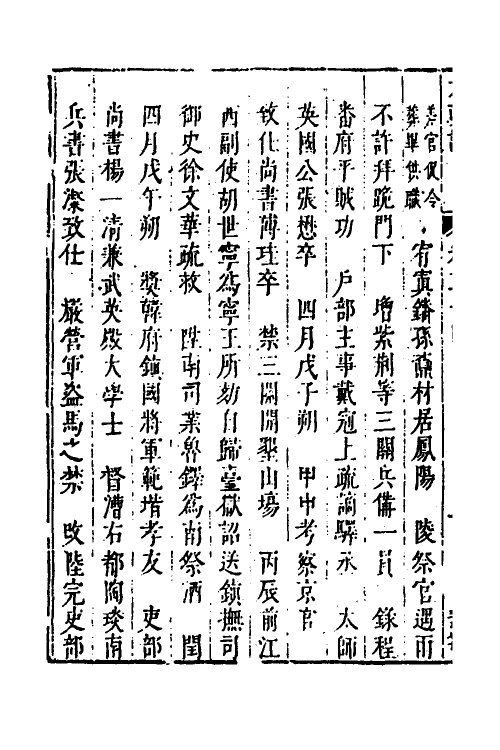 差官促令葬畢供職　宥寘鐇孫鼒材居鳳陽　陵祭官遇雨
不許拜跪門下　增紫荆等三關兵備一員　錄程
番府平賊功　戶部主事戴冠上疏謫驛丞　太師
英國公張懋卒　四月戊子朔　甲申考察京官
致仕尚書傅珪卒　禁三關開墾山場　丙辰前江
西副使胡世寧為寧王所劾自歸臺獄詔送鎮撫司
御史徐文華疏救　陞南司業魯鐸為南祭酒　閏
四月戊午朔　獎韓府鎮國將軍範堦孝友　吏部
尚書楊一清兼武英殿大學士　督漕右都陶琰南
兵書張澯致仕　嚴營軍盗馬之禁　改陸完吏部